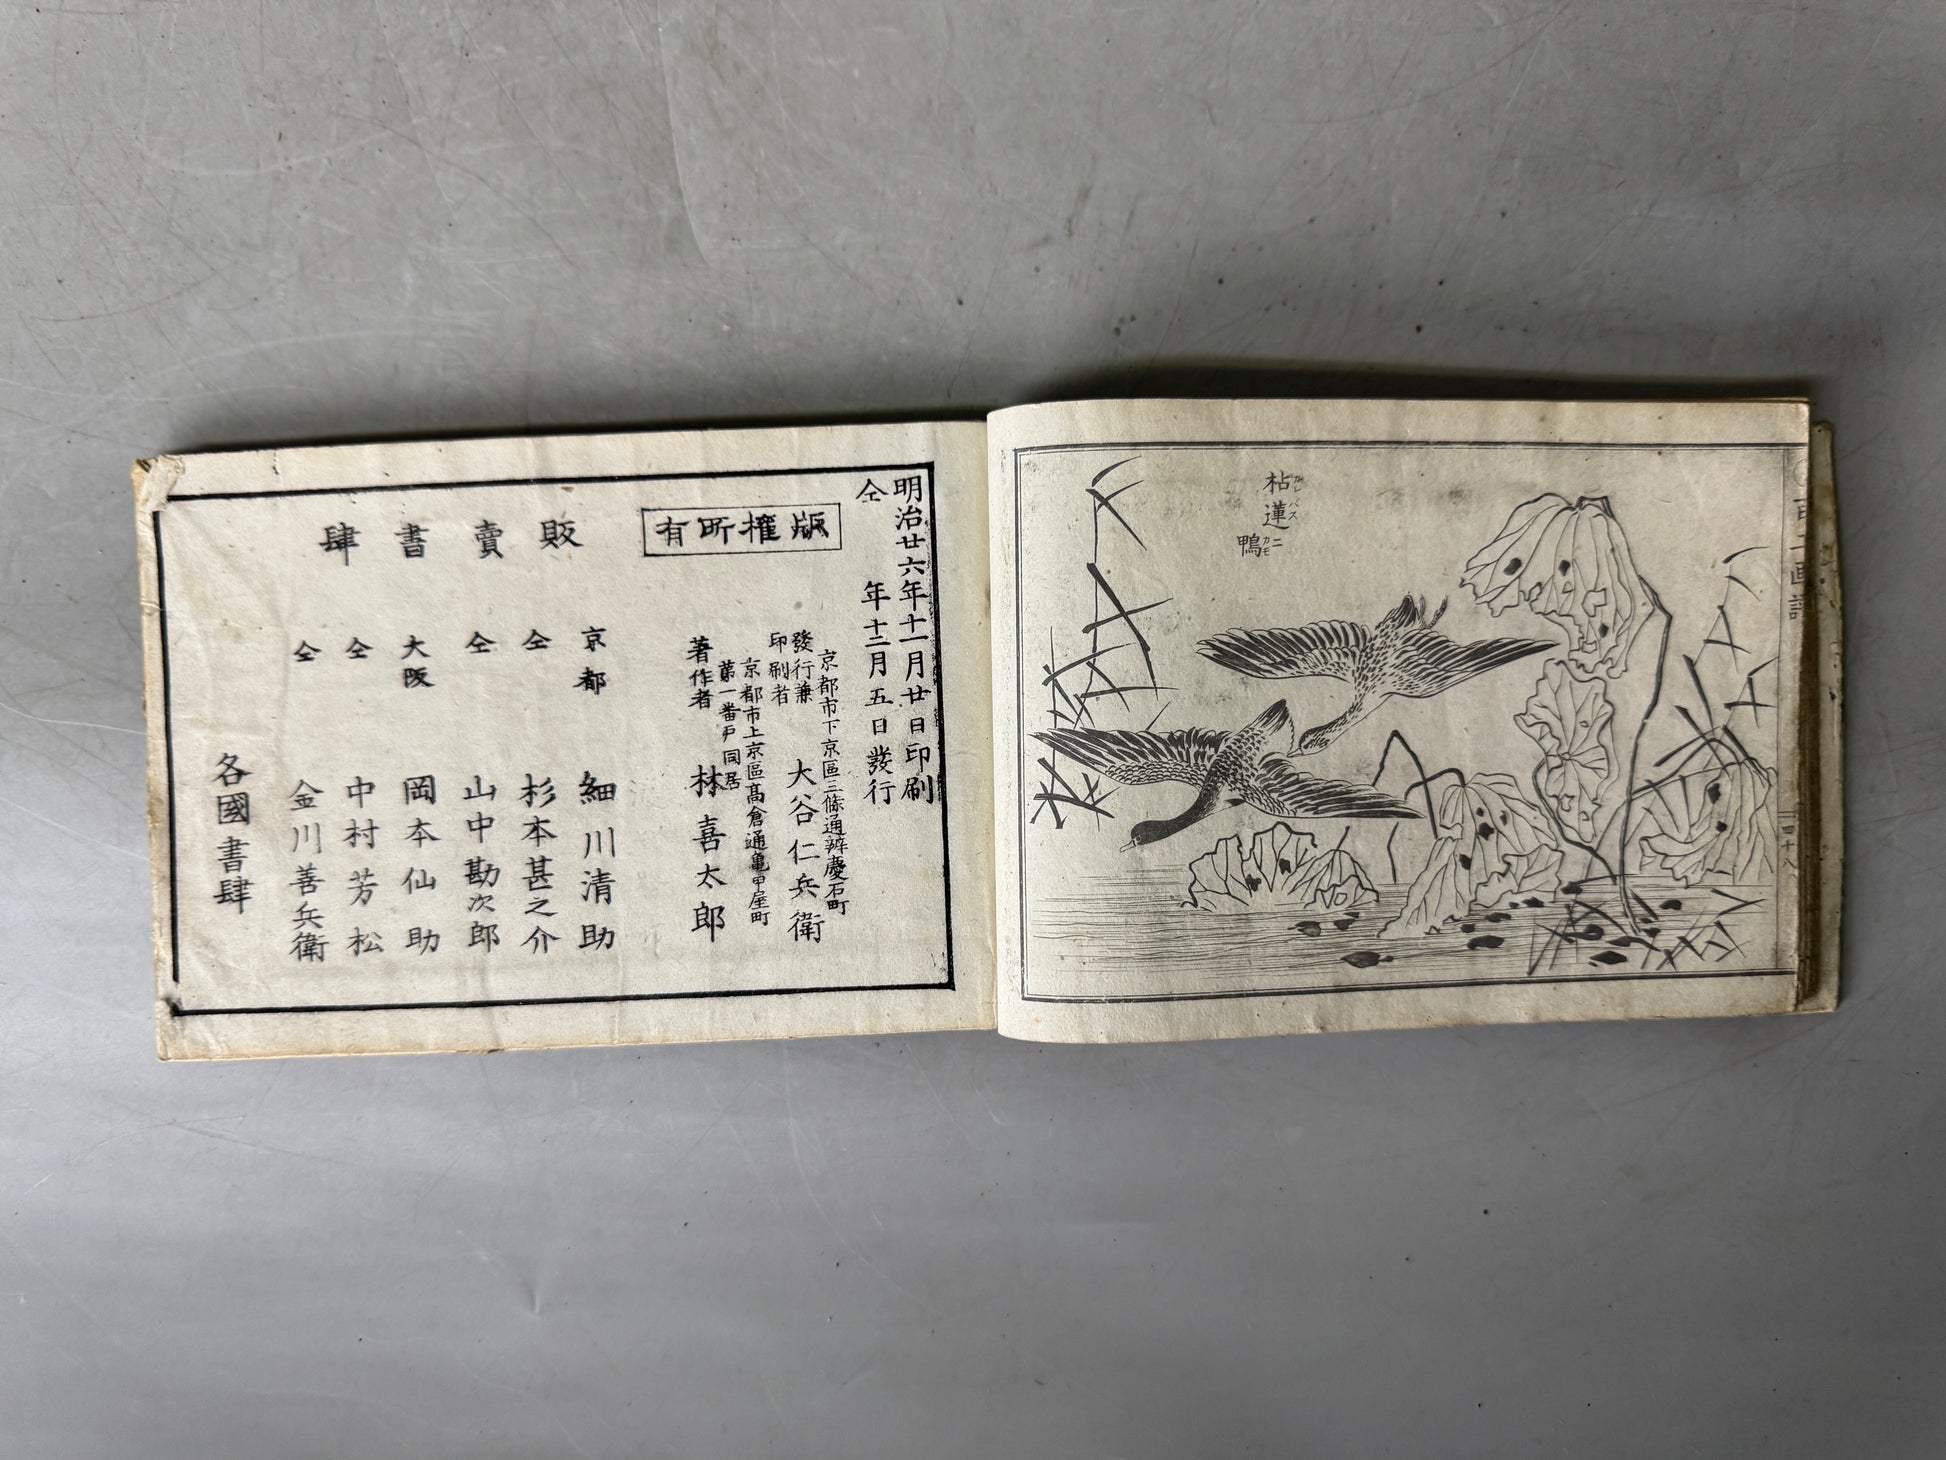 枯蓮ニ
カレハス
鴨
カモ
四十八
明治廿六年十一月廿日印刷
仝年十二月五日發行
版權所有
京都市下京區三條通辨慶石町
發行兼
印刷者
大谷仁兵衛
京都市上京區高倉通亀甲屋町
第一番戸同居
著作者
林喜太郎
販賣書肆
京都 細川清助
仝 杉本甚之介
仝 山中勘次郎
大阪 岡本仙助
仝 中村芳松
仝 金川善兵衛
各國書肆